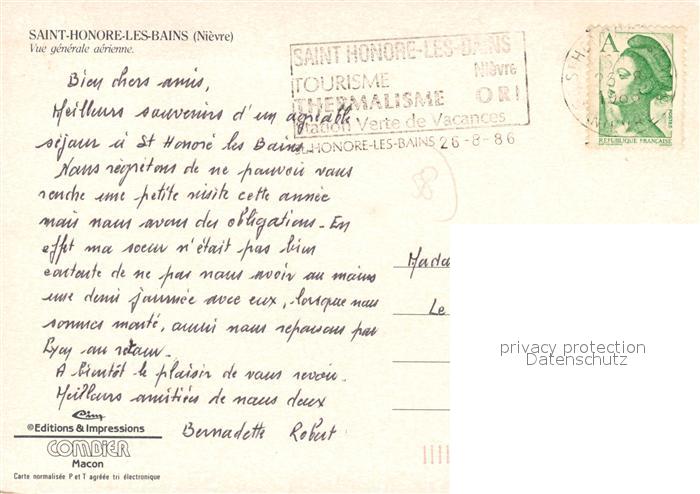 SAINT-HONORE-LES-BAINS (Nièvre)
Vue générale aérienne.
SAINT HONORE-LES-BAINS
Nièvre
TOURISME
THERMALISME OR!
Station Verte de Vacances
HONORE-LES-BAINS 26-8-86
A
REPUBLIQUE FRANÇAISE
POSTES
Bien chers amis,
Meilleurs souvenirs d'un agréable
séjour à St Honoré les Bains.
Nous regrétons de ne pouvoir vous
rendre une petite visite cette année
mais nous avons des obligations. En
effet ma soeur n'était pas bien
contente de ne pas nous avoir au moins
une demi journée avec eux, lorsque nous
sommes monté, aussi nous repassons par
Lyon au retour.
A bientôt le plaisir de vous revoir.
Meilleurs amitiées de nous deux
Bernadette Robert
Mada
Le
privacy protection
Datenschutz
Cim
©Editions & Impressions
COMBIER
Macon
Carte normalisée P et T agréée tri électronique